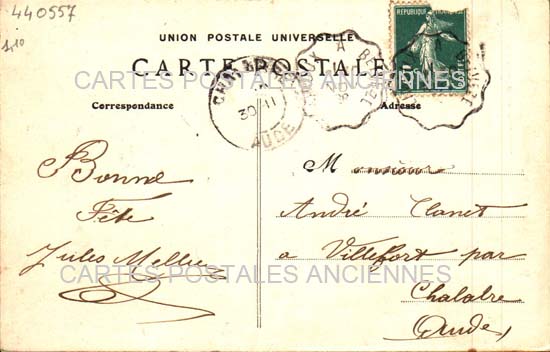 440557
UNION POSTALE UNIVERSELLE
REPUBLIQUE
CARTE POSTALE
CARTES POSTALES ANCIENNES
Correspondance
Adresse
30 11
AUDE
Bonne
Fête
Jules
Monsieur
André Clanet
a Villefort par
Chalabre
(Aude)
CARTES POSTALES ANCIENNES